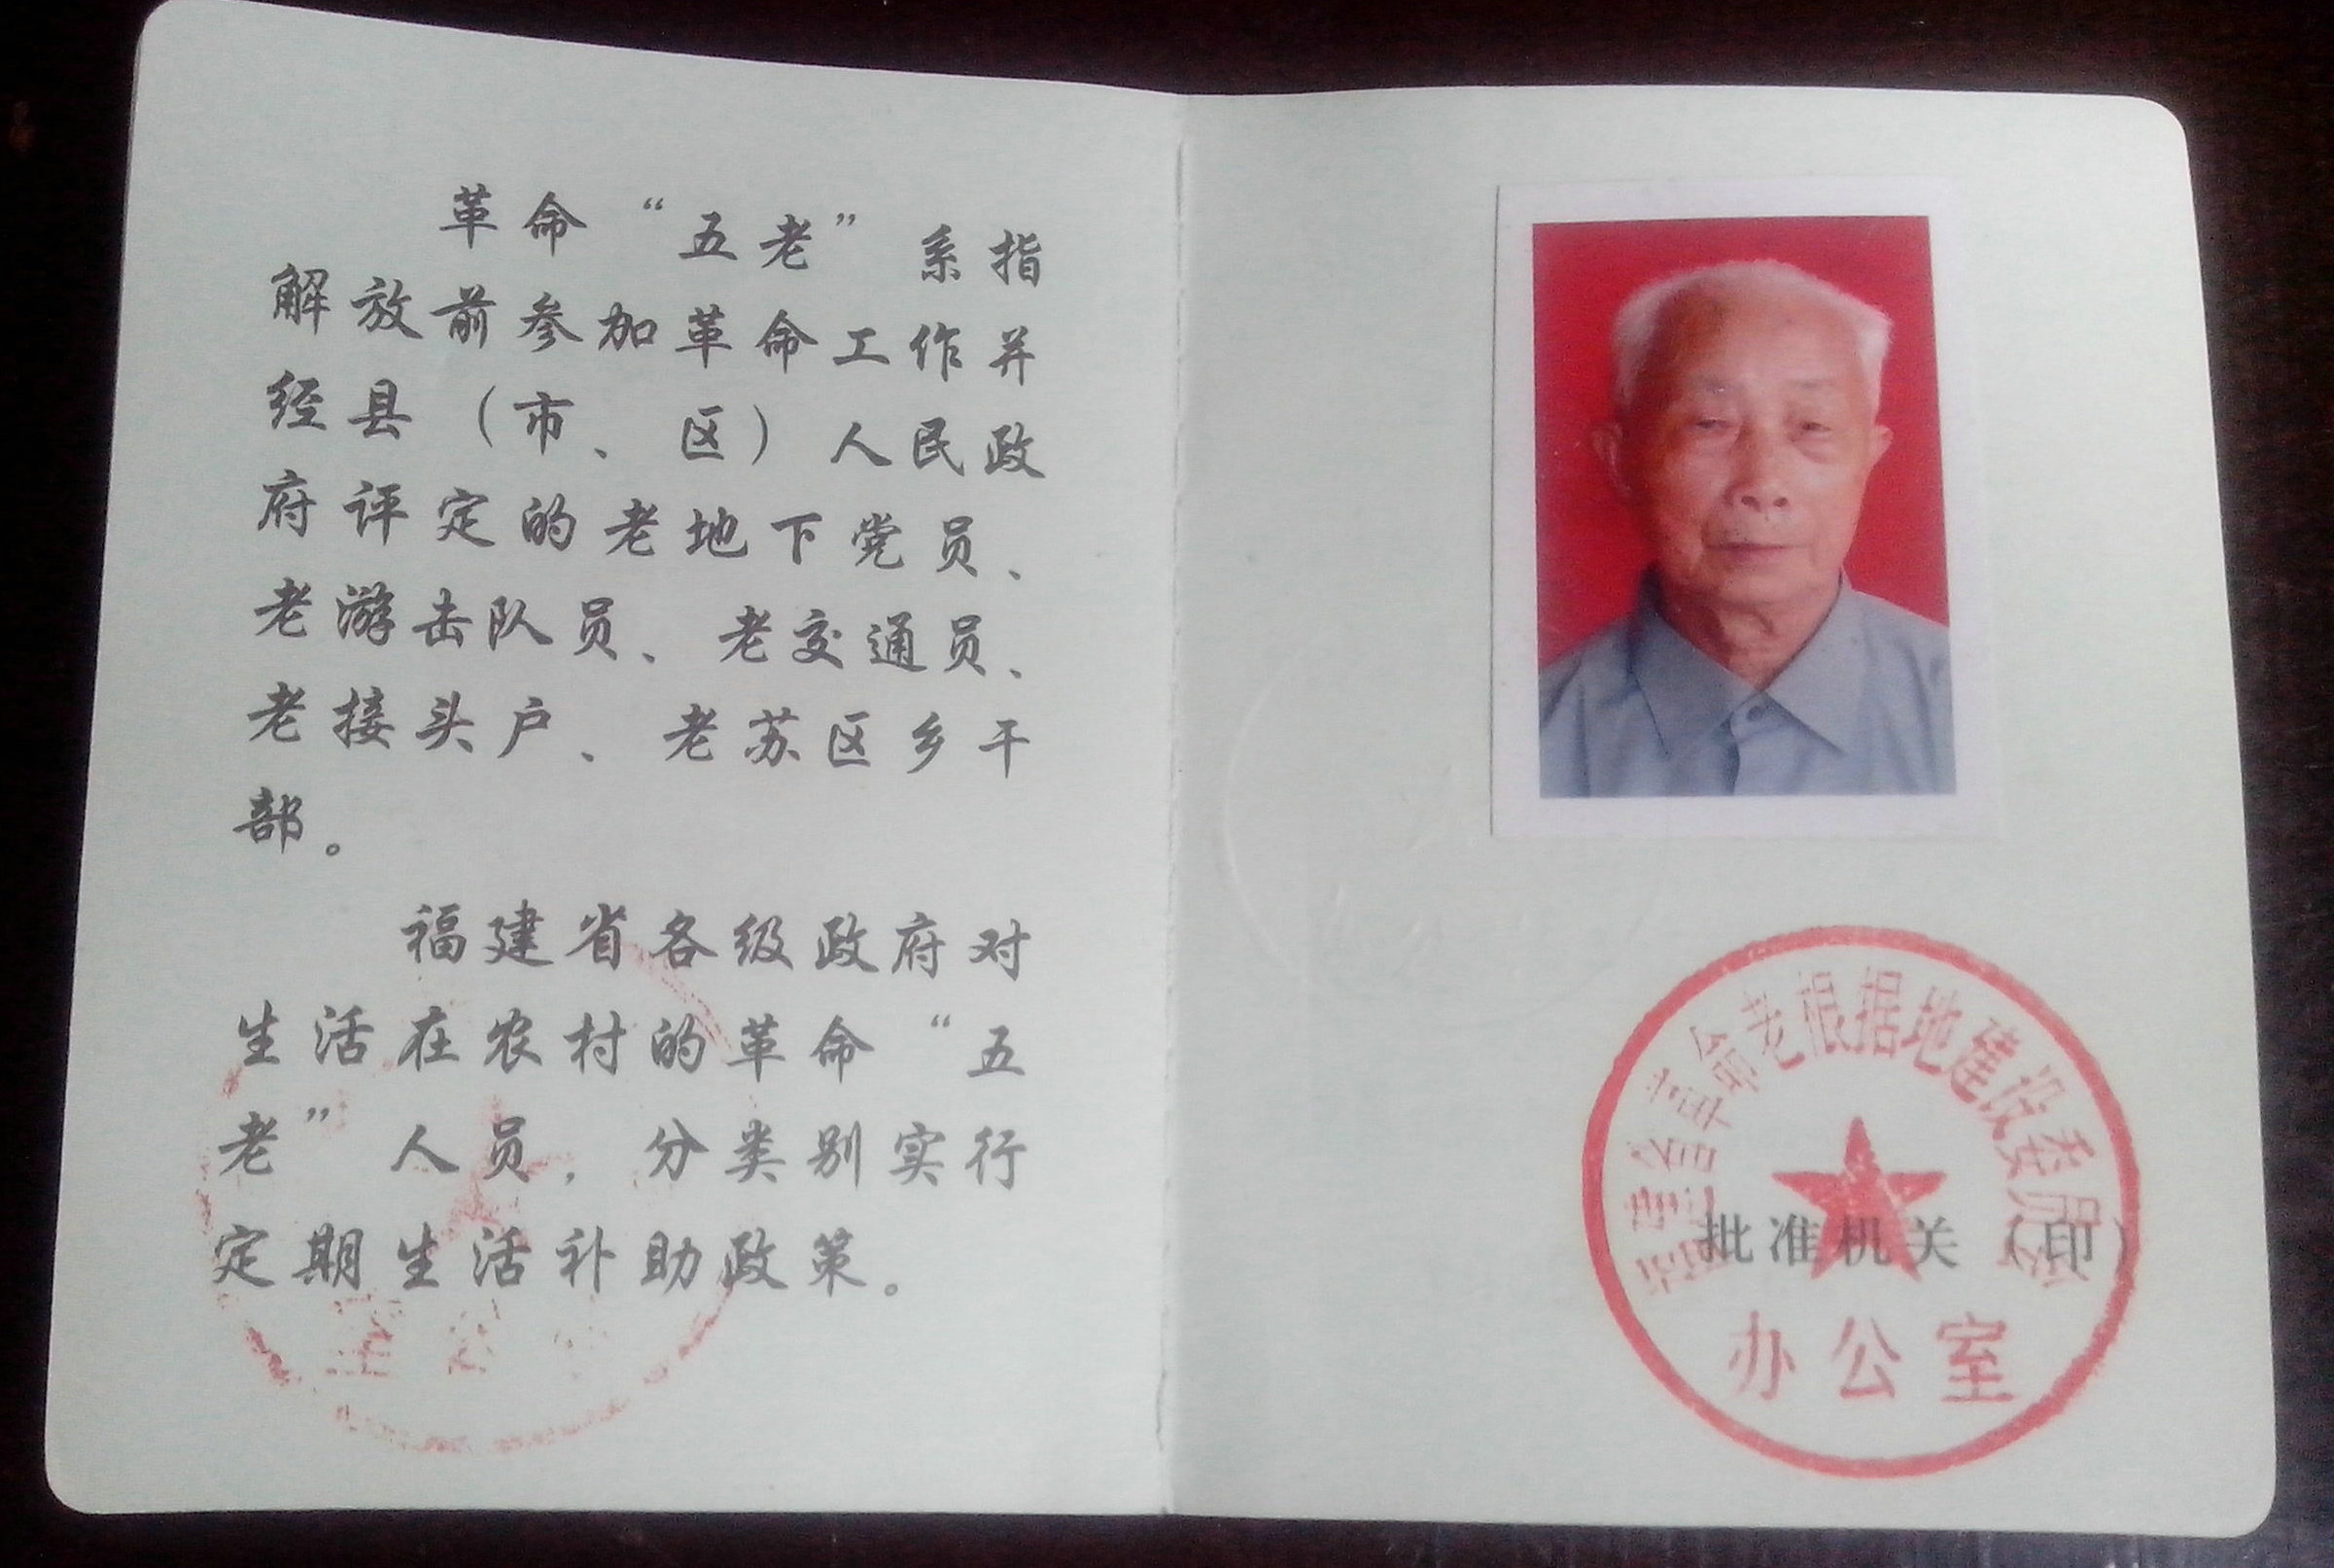 革命“五老”系指
解放前参加革命工作并
经县（市、区）人民政
府评定的老地下党员、
老游击队员、老交通员、
老接头户、老苏区乡干
部。
福建省各级政府对
生活在农村的革命“五
老”人员，分类别实行
定期生活补助政策。
福建省革命老根据地建设委员会
批准机关（印）
办公室